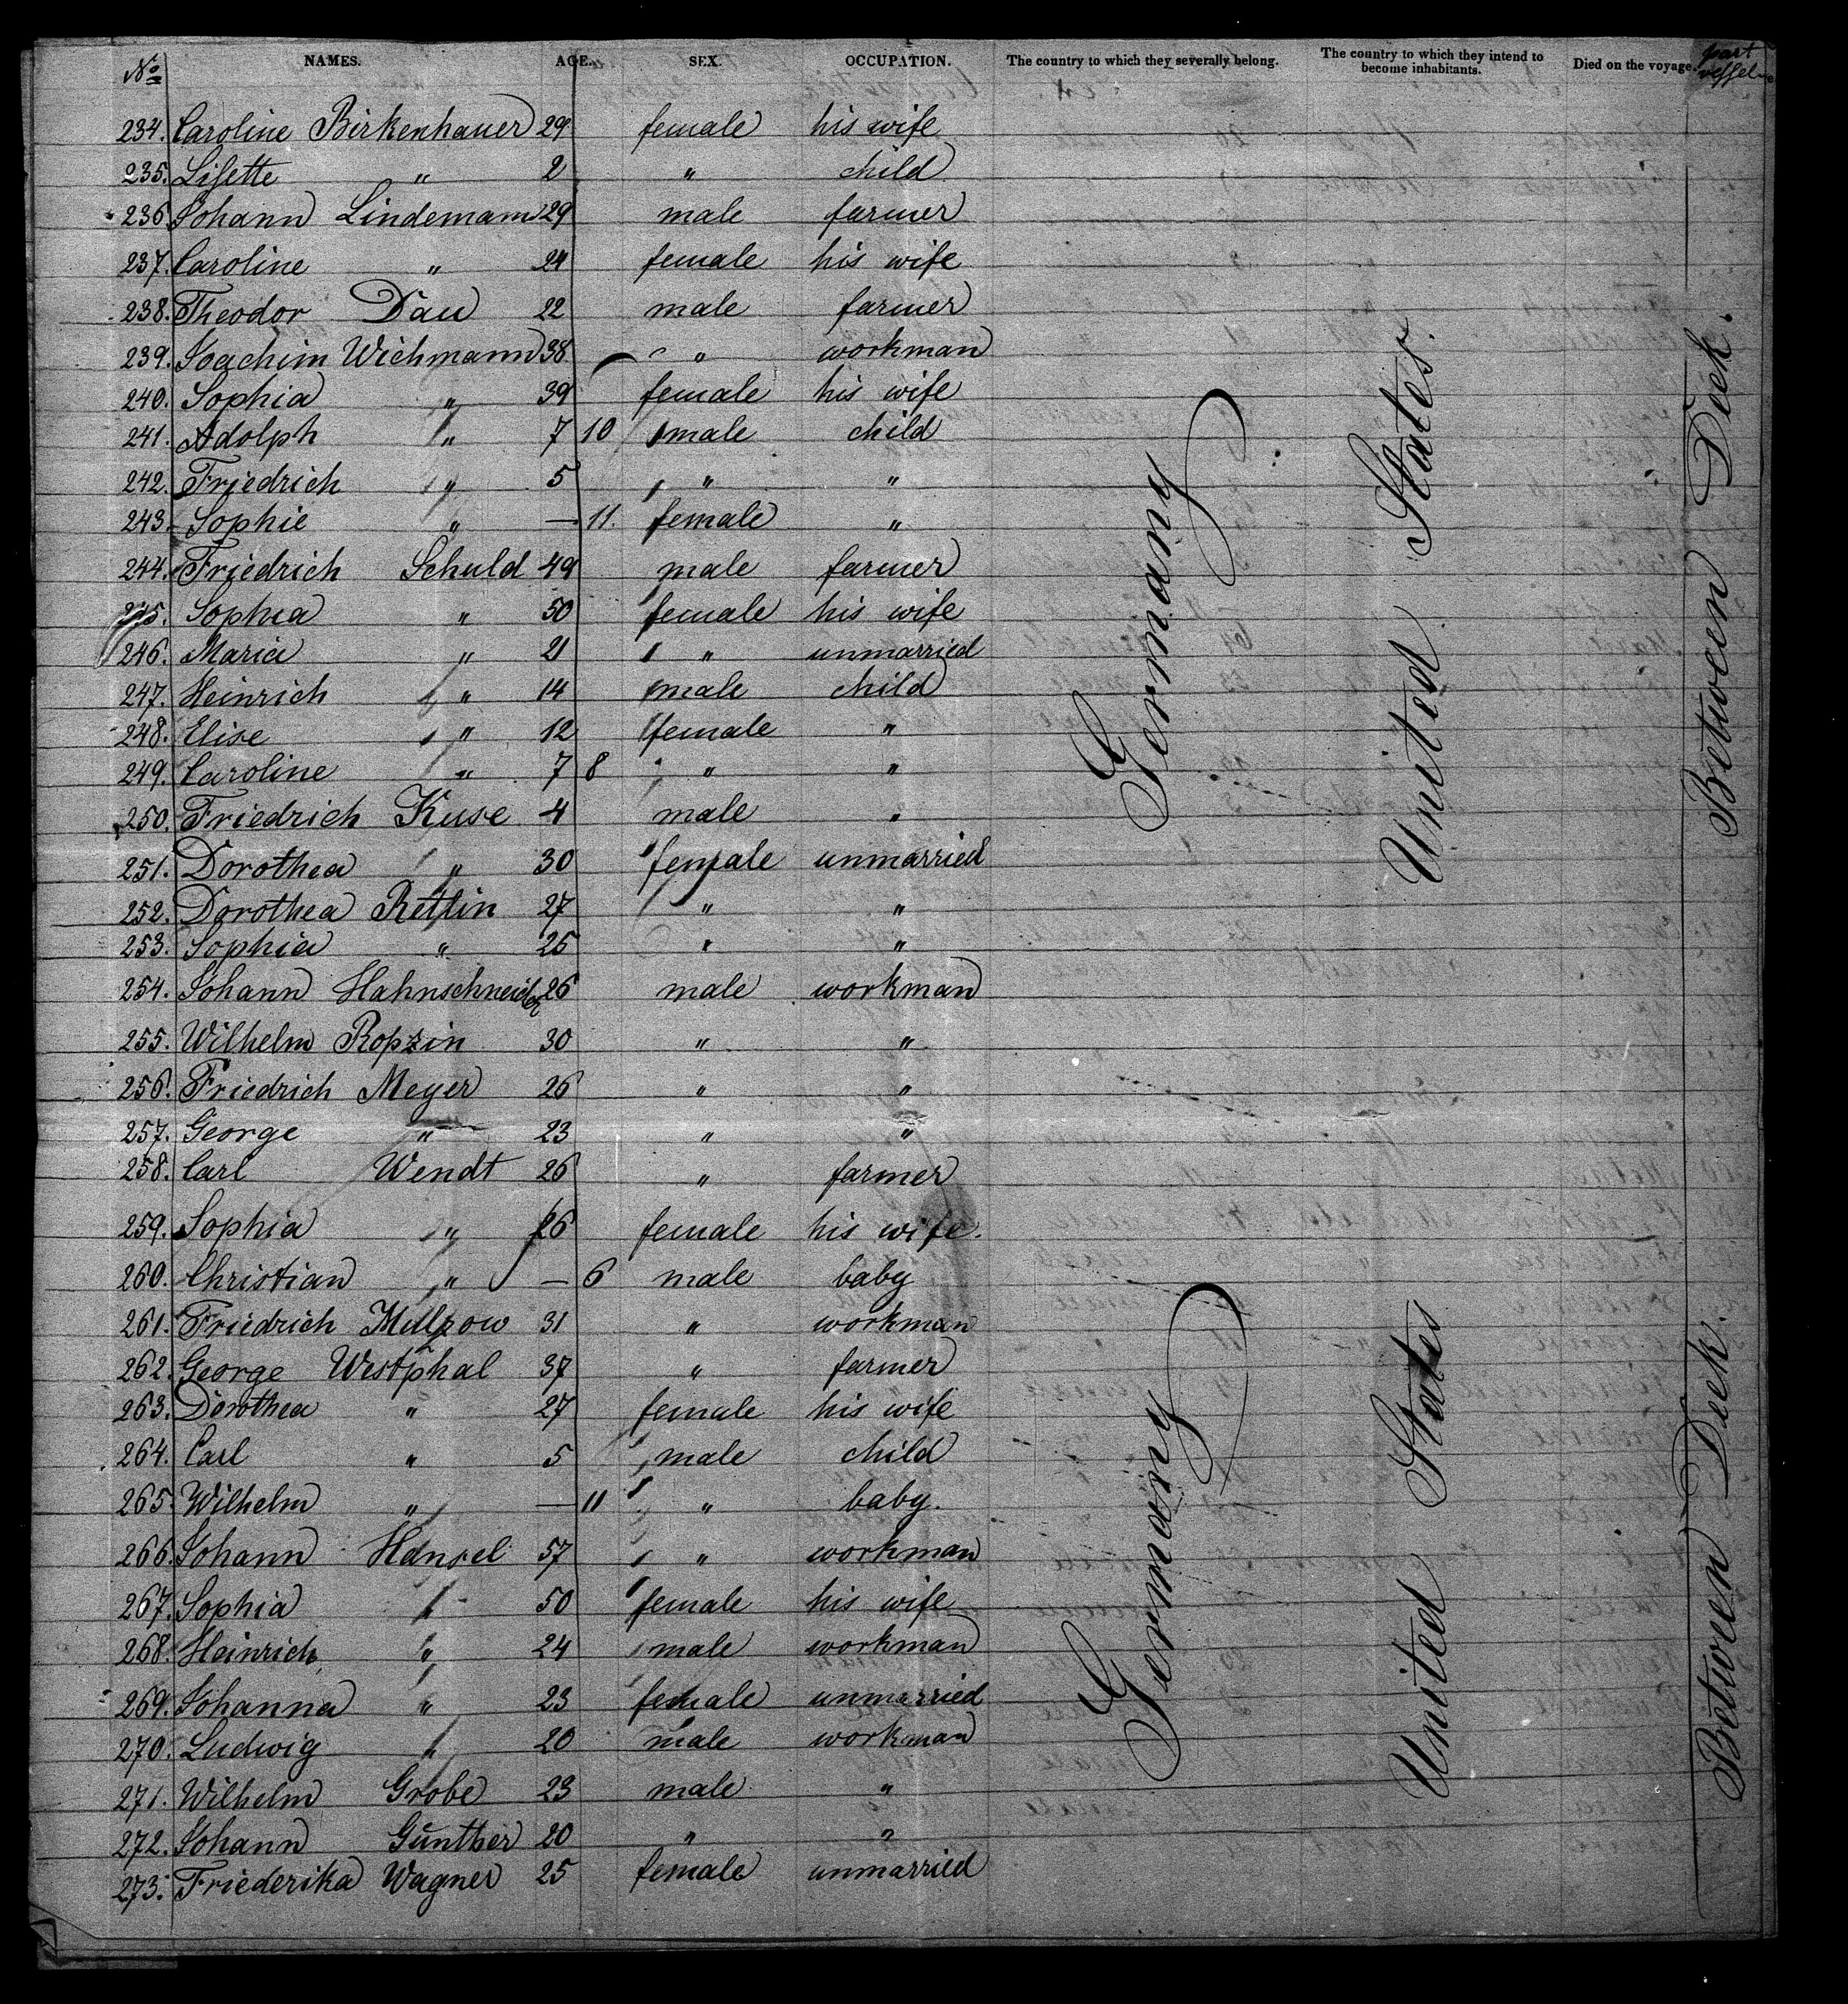 No NAMES. AGE. SEX. OCCUPATION. The country to which they severally belong. The country to which they intend to become inhabitants. Died on the voyage. part vessel
234. Caroline Birkenhauer 29 female his wife
235. Lisette " 2 " child
236. Johann Lindemann 29 male farmer
237. Caroline " 24 female his wife
238. Theodor Dau 22 male farmer
239. Joachim Wichmann 38 " workman
240. Sophia " 39 female his wife
241. Adolph " 7 10 male child
242. Friedrich " 5 " "
243. Sophie " — 11. female "
244. Friedrich Schuld 49 male farmer
245. Sophia " 50 female his wife
246. Maria " 21 " unmarried
247. Heinrich " 14 male child
248. Elise " 12 female "
249. Caroline " 7 8 " "
250. Friedrich Kuse 4 male "
251. Dorothea " 30 female unmarried
252. Dorothea Rettin 27 " "
253. Sophia " 25 " "
254. Johann Hahnschneider 26 male workman
255. Wilhelm Ropzin 30 " "
256. Friedrich Meyer 26 " "
257. George " 23 " "
258. Carl Wendt 26 " farmer
259. Sophia " 26 female his wife.
260. Christian " — 6 male baby
261. Friedrich 31 " workman
262. George Westphal 37 " farmer
263. Dorothea " 27 female his wife
264. Carl " 5 male child
265. Wilhelm " — 11 " baby.
266. Johann Hansel 57 " workman
267. Sophia " 50 female his wife
268. Heinrich " 24 male workman
269. Johanna " 23 female unmarried
270. Ludwig " 20 male workman
271. Wilhelm Grobe 23 male "
272. Johann Günther 20 " "
273. Friederika Wagner 25 female unmarried
Germany
United States.
Between Deck.
Germany
United States
Between Deck.